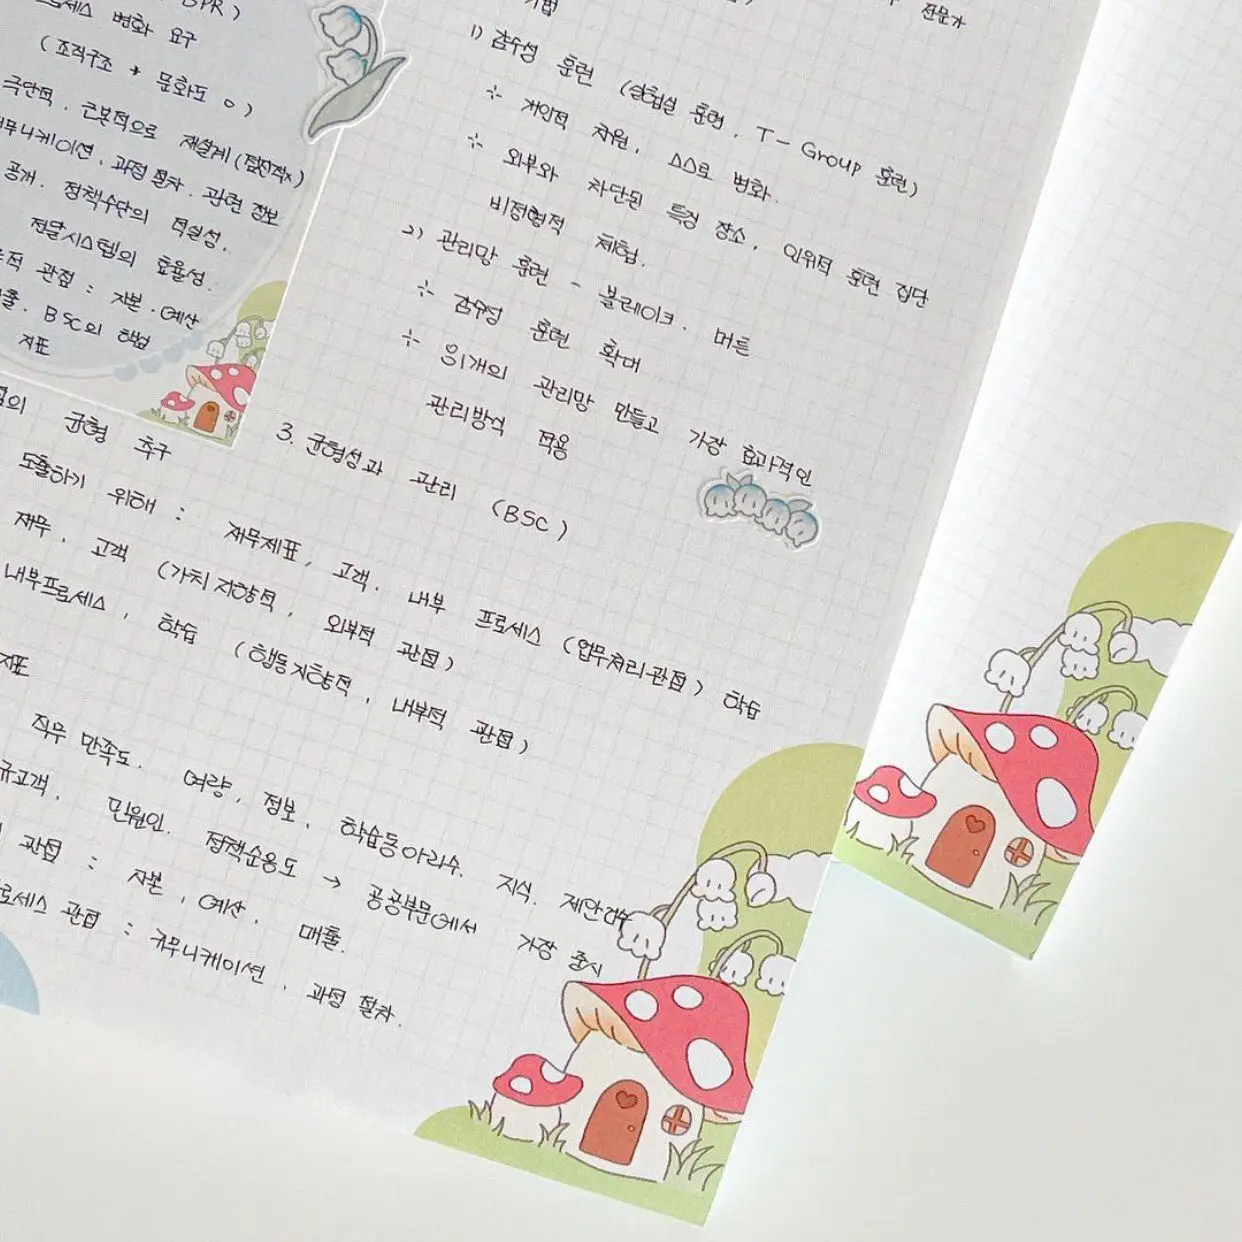 BPR)
변화 요구
(조직구조 → 문화도 O)
극단적. 근본적으로 재설계 (점진적x)
커뮤니케이션. 과정 절차. 관련 정보
공개. 정책수단의 적실성.
전달시스템의 효율성.
관점 : 자본. 예산
BSC의 핵심
지표
기법
전문가
1) 감수성 훈련 (실험실 훈련. T- Group 훈련)
÷ 개인적 차원, 스스로 변화.
÷ 외부와 차단된 특정 장소, 인위적 훈련 집단
비정형적 체험.
2) 관리망 훈련 - 블레이크. 머튼
÷ 감수성 훈련 확대
÷ 81개의 관리망 만들고 가장 효과적인
관리방식 적용
3. 균형성과 관리 (BSC)
균형 추구
도출하기 위해 : 재무제표, 고객. 내부 프로세스 (업무처리관점) 학습
재무. 고객 (가치지향적, 외부적 관점)
내부프로세스, 학습 (행동지향적, 내부적 관점)
지표
직무 만족도. 역량, 정보. 학습동아리수. 지식. 제안건수
민원인. 정책순응도 → 공공부문에서 가장 중시
관점 : 자본, 예산. 매출.
프로세스 관점 : 커뮤니케이션. 과정 절차.